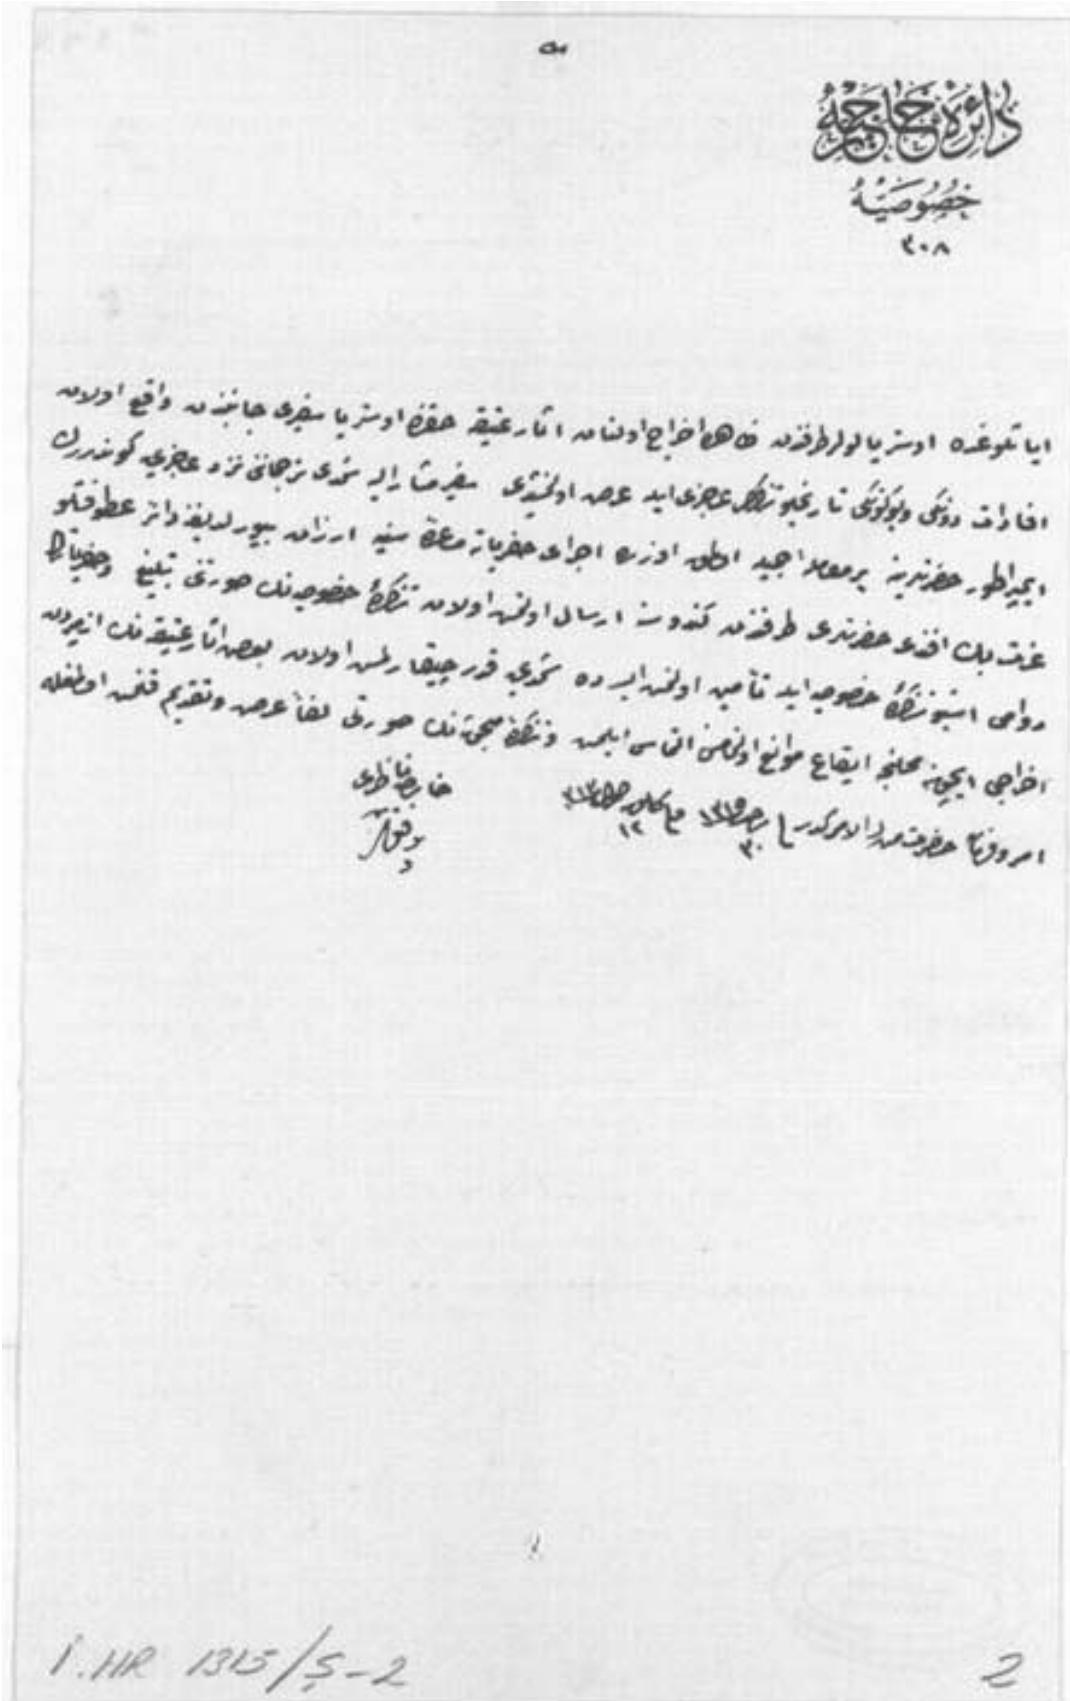 دائرهٔ خارجیه
خصوصیه
٣٠٨
ایاثلوغده اوستریالولر طرفندن اخراج اولنان اثار عتیقه حقنده اوستریا سفیری جانبندن واقع اولان
افادات دونکی وبوکونکی تاریخلو عاجزی ایله عرض اولنمشدی سفیر مشار الیه شمدی ترجماننی نزد عاجزی یه کوندررك
ایمپراطور حضرتلرینه بر معاملهٔ اولمق اوزره اجرای حفریاته مساعدهٔ سنیه ارزان بیورلدیغنه دائر عطوفتلو
عزت بك افندی حضرتلری طرفندن کندوسنه ارسال اولنمش اولان تذکرهٔ خصوصیه نك صورتنی تبلیغ وحفریاتك
دوامی اشبو تذکرهٔ خصوصیه ایله تأمین اولنمش ایسه ده شمدی یه قدر چیقارلمش اولان بعض اثار عتیقه نك ازمیردن
اخراجی ایچون محلنجه ایقاع موانع اولنمامسنی التماس ایلمش وتذکرهٔ نك صورتی لفاً عرض وتقدیم قلنمش اولمغله
امر وفرمان حضرت من له الامرکدر فی ٣٠ رجب ١٣١٥ وفی ١٢ كانون اول ٣١٣
خارجیه ناظری
توفیق
İ.HR 1315/Ş-2
2